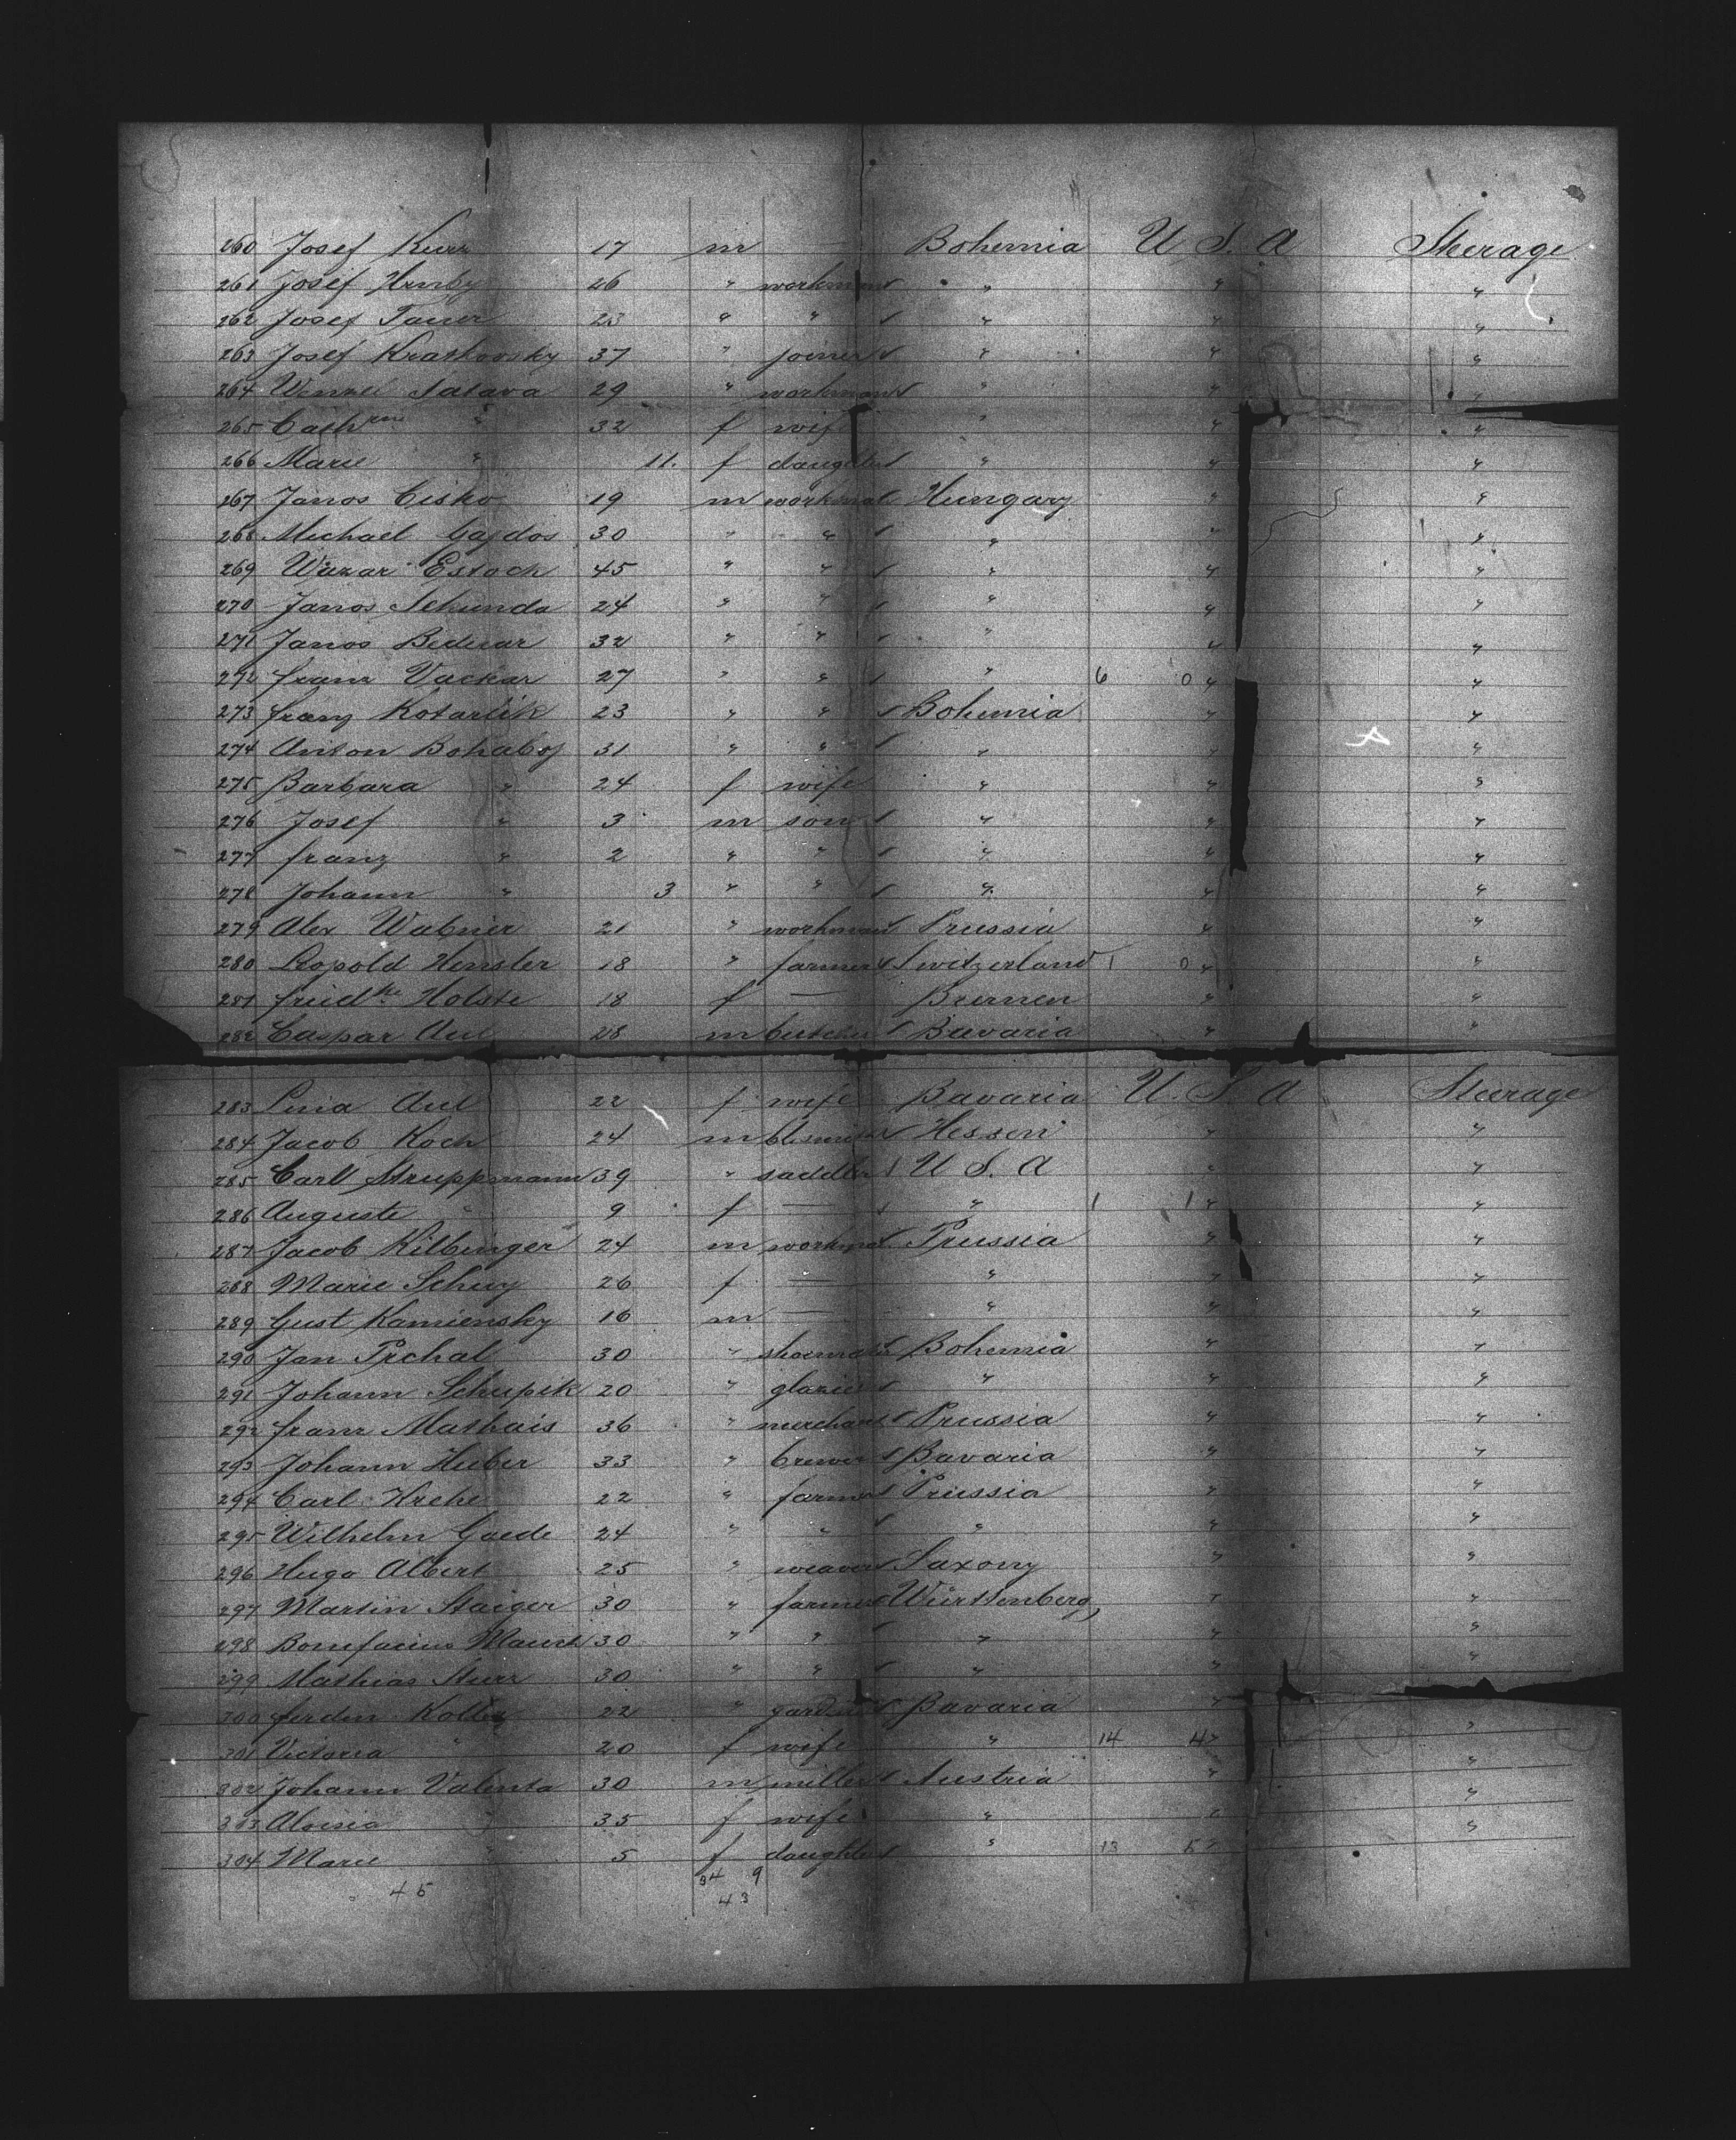 260 Josef Kurz 17 m — Bohemia U. S. A Steerage
261 Josef Hruby 26 " workman " " "
262 Josef Tauer 23 " " " " "
263 Josef Krathovsky 37 " joiner " " "
264 Wenzel Satava 29 " workman " " "
265 Cathrin " 32 f wife " " "
266 Marie " 11. f daughter " " "
267 Janos Cisko 19 m workman Hungary " "
268 Michael Gajdos 30 " " " " "
269 Estock 45 " " " " "
270 Janos Schunda 24 " " " " "
271 Janos Bednar 32 " " " " "
272 Franz Vackar 27 " " " 6 0 " "
273 Franz Kotarlik 23 " " Bohemia " "
274 Anton 31 " " " " "
275 Barbara " 24 f wife " " "
276 Josef " 3 m son " " "
277 Franz " 2 " " " " "
278 Johann " 3 " " " " "
279 Alex Wabnier 21 " workman Prussia " "
280 Leopold Hensler 18 " farmer Switzerland 1 0 " "
281 Fried ke Holste 18 f — Bremen " "
282 Caspar Aul 28 m butcher Bavaria " "
283 Lina Aul 22 f wife Bavaria U. S. A Steerage
284 Jacob Koch 24 m Hessen " "
285 Carl Struppmann 39 " saddler U. S. A " "
286 Auguste " 9 f — " 1 1 " "
287 Jacob Kilbinger 24 m workman Prussia " "
288 Marie Schuy 26 f — " " "
289 Gust Kamiensky 16 m — " " "
290 Jan Prchal 30 " shoemaker Bohemia " "
291 Johann Schupik 20 " glazier " " "
292 Franz Mathais 36 " merchant Prussia " "
293 Johann Huber 33 " brewer Bavaria " "
294 Carl Krehe 22 " farmer Prussia " "
295 Wilhelm Goede 24 " " " " "
296 Hugo Albert 25 " weaver Saxony " "
297 Martin Staiger 30 " farmer Württemberg " "
298 Bonifacius Mauch 30 " " " " "
299 Mathias Sturz 30 " " " " "
300 Ferdin 22 " gardener Bavaria " "
301 Victoria " 20 f wife " 14 4 " "
302 Johann Valenta 30 m miller Austria " "
303 Aloisia " 35 f wife " " "
304 Marie " 5 f daughter " 13 5 " "
45 34 9
43